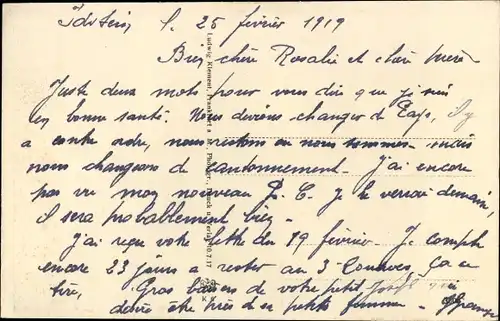 Idstein, l. 25 février 1919
Bien chère Rosalie et chère mère
Juste deux mots pour vous dire que je suis
en bonne santé. Nous devions changer de Pays, il y
a contre ordre, nous restons ou nous sommes. mais
nous changeons de cantonnement. J'ai encore
pas vu mon nouveau P. C. Je le verrai demain,
il sera probablement bien.
J'ai reçu votre lettre du 19 février. Je compte
encore 23 jours a rester au 3
tire, Gros baisers de votre petit Joseph qui
désire être près de sa petite femme.
Ludwig Klement, Frankfurt a. M.